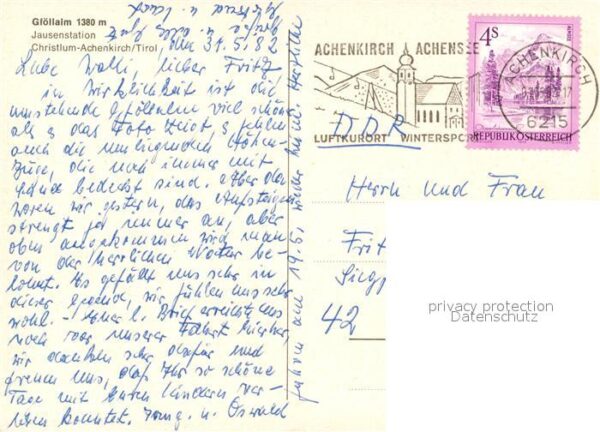 Gföllalm 1380 m
Jausenstation
Christlum-Achenkirch/Tirol
den 31.5.82
Liebe Walli, lieber Fritz,
in Wirklichkeit ist die
umstehende Gföllalm viel schöner
als es das Foto zeigt, es fehlen
auch die umliegenden Höhen-
züge, die noch immer mit
bedeckt sind. Aber da
waren wir gestern, das Aufsteigen
strengt ja immer an, aber
oben angekommen wird man
von der herrlichen Natur be-
lohnt. Es gefällt uns sehr in
dieser Gegend, wir fühlen uns sehr
wohl. - Euer l. Brief erreichte uns
noch vor unserer Fahrt hierher,
wir danken sehr dafür und
freuen uns, daß Ihr so schöne
Tage mit Euren Kindern ver-
leben konntet. Irmg. u. Oswald
fahren am 19.6. wieder
ACHENKIRCH ACHENSEE
LUFTKURORT WINTERSPORT
4S
REPUBLIK ÖSTERREICH
ACHENKIRCH
6215
DDR
Herrn und Frau
Frit
42
privacy protection
Datenschutz